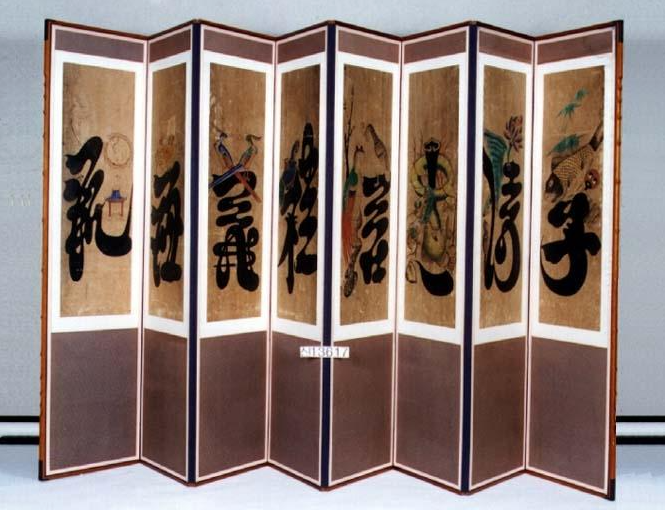 孝
悌
忠
信
禮
義
廉
恥
신13617